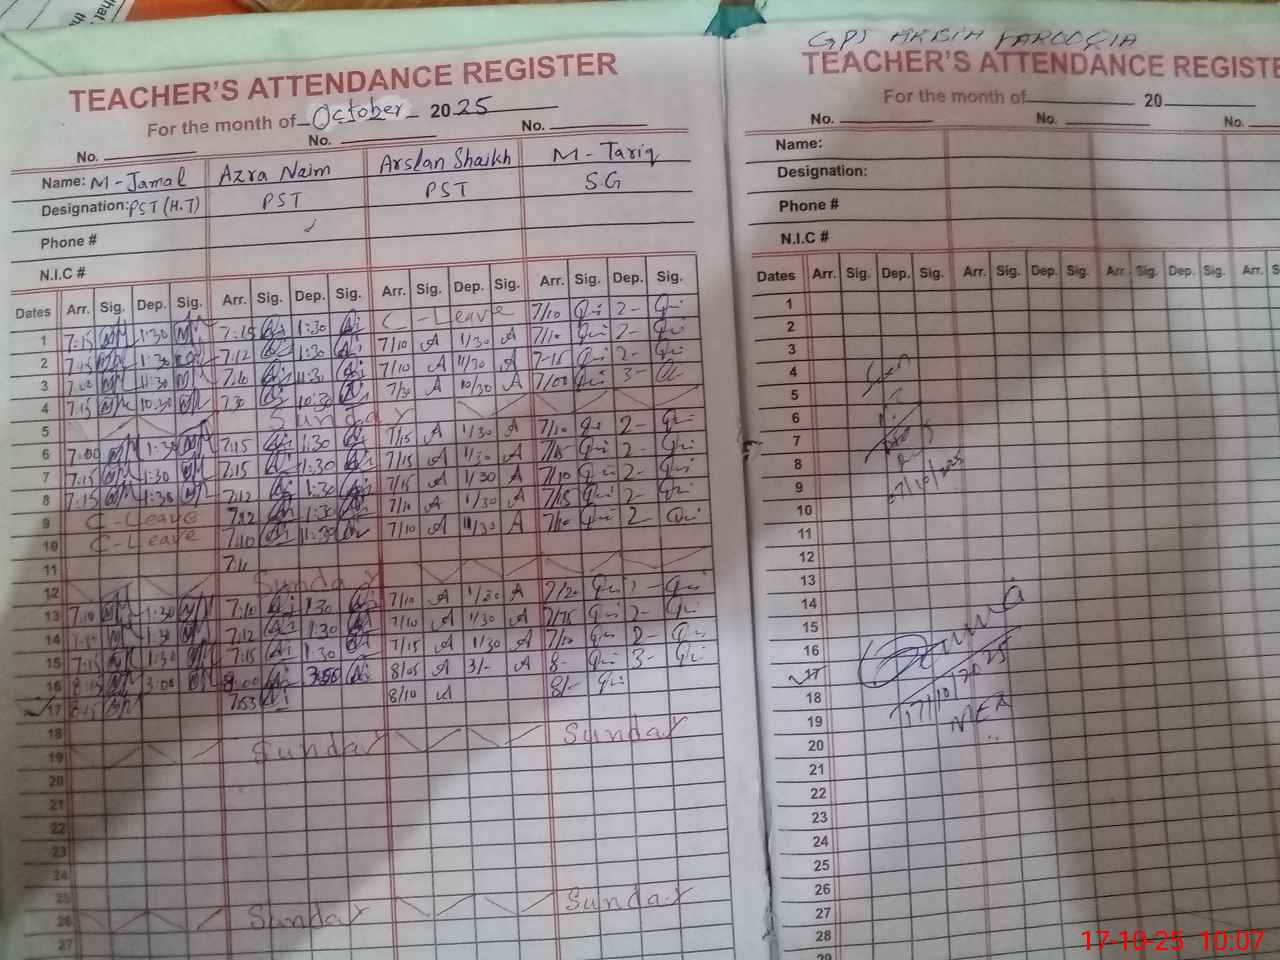 GPS ARBIA FAROOQIA
TEACHER'S ATTENDANCE REGISTER
For the month of October 2025
No. No. No.
Name: M-Jamal Azra Naim Arslan Shaikh M-Tariq
Designation: PST (H.T) PST PST S.G
Phone #
N.I.C #
Dates Arr. Sig. Dep. Sig. Arr. Sig. Dep. Sig. Arr. Sig. Dep. Sig. Arr. Sig. Dep. Sig.
1 7:15 1:30 7:15 1:30 C-Leave 7/10 2-
2 7:15 1:30 7:12 1:30 7/10 A 1/30 A 7/10 2-
3 7:00 11:30 7:10 11:30 7/10 A 11/30 A 7-15 2-
4 7:15 10:30 7:30 10:30 7/30 A 10/30 A 7/00 3-
5 Sunday
6 7:00 1:30 7:15 1:30 7/15 A 1/30 A 7/10 2-
7 7:15 1:30 7:15 1:30 7/15 A 1/30 A 7/15 2-
8 7:15 1:30 7:12 1:30 7/15 A 1/30 A 7/10 2-
9 C-Leave 7:12 1:30 7/10 A 1/30 A 7/15 2-
10 C-Leave 7:10 11:30 7/10 A 11/30 A 7/10 2-
11 7:11
12 Sunday
13 7:10 1:30 7:10 1:30 7/10 A 1/30 A 7/20 2-
14 1:30 7:12 1:30 7/10 A 1/30 A 7/15 2-
15 7:15 1:30 7:15 1:30 7/15 A 1/30 A 7/10 2-
16 8:15 3:00 8:00 3:00 8/05 A 3/- A 8- 3-
17 8:15 7:53 8/10 A 8/-
18
19 Sunday Sunday
20
21
22
23
24
25
26 Sunday Sunday
27
TEACHER'S ATTENDANCE REGISTE
For the month of 20
No. No. No.
Name:
Designation:
Phone #
N.I.C #
Dates Arr. Sig. Dep. Sig. Arr. Sig. Dep. Sig. Arr. Sig. Dep. Sig. Arr. S
1
2
3
4
5
6
7
8
9
07/10/2025
10
11
12
13
14
15
16
17
17/10/2025
18
19
MEA
20
21
22
23
24
25
26
27
28
29
17-10-25 10:07